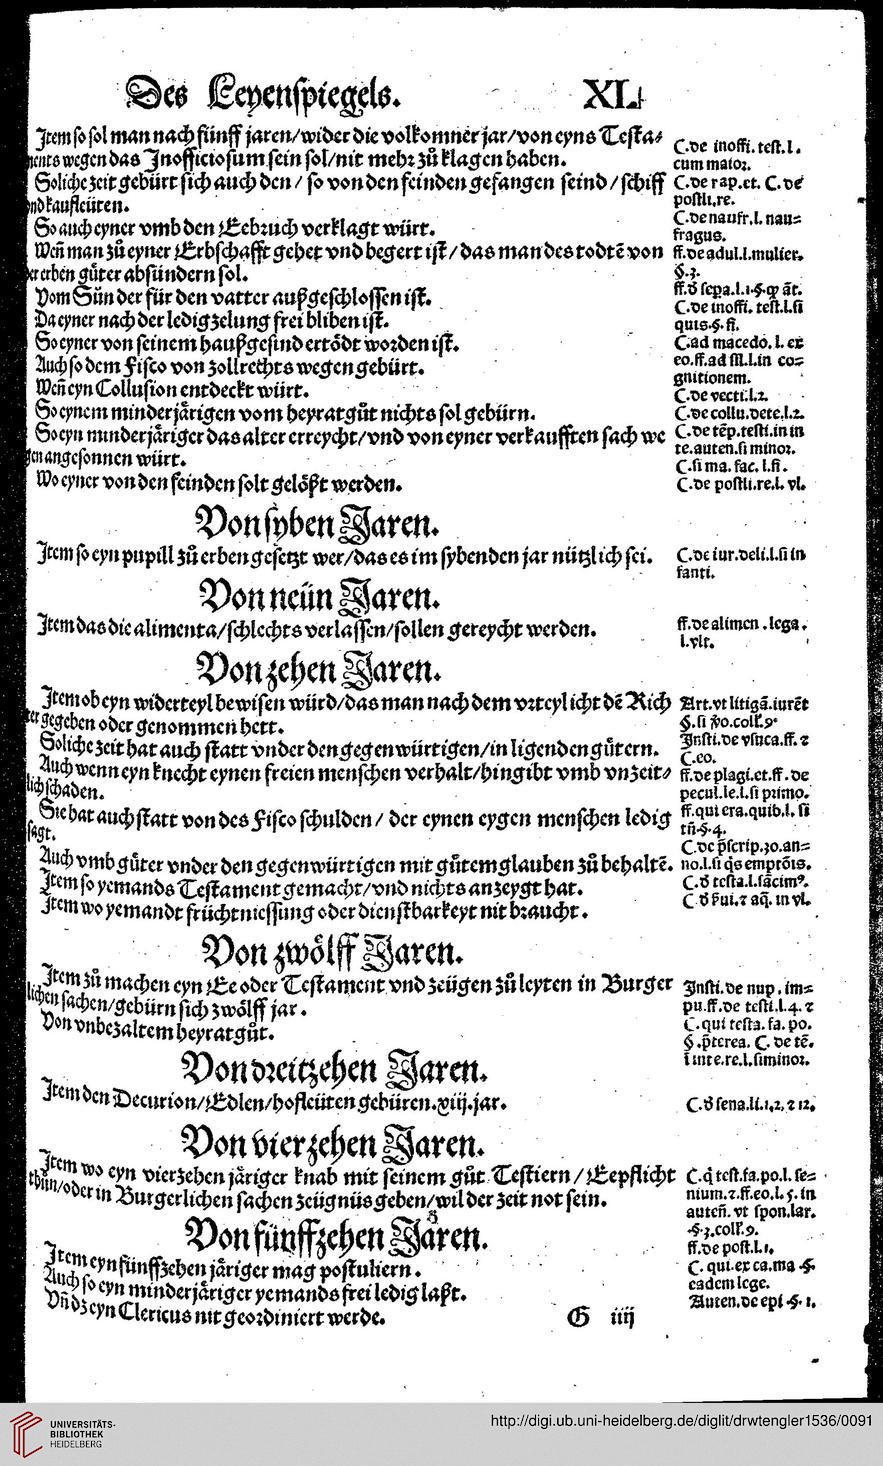 Des Leyenspiegels. XL.
Item so sol man nach fünff jaren/wider die volkomner jar/von eyns Testa⸗
ments wegen das Inofficiosum sein sol/nit mehr zů klagen haben.
Soliche zeit gebürt sich auch den / so von den feinden gefangen seind / schiff
vnd kaufleüten.
So auch eyner vmb den Eebruch verklagt würt.
Weñ man zů eyner Erbschafft gehet vnd begert ist / das man des todtē von
der erben güter absündern sol.
Vom Sün der für den vatter außgeschlossen ist.
Da eyner nach der ledigzelung frei bliben ist.
So eyner von seinem haußgesind ertödt worden ist.
Auch so dem Fisco von zollrechts wegen gebürt.
Weñ eyn Collusion entdeckt würt.
So eynem minderjärigen vom heyratgůt nichts sol gebürn.
So eyn minderjäriger das alter erreycht/vnd von eyner verkaufften sach we
gen angesonnen würt.
Wo eyner von den feinden solt gelößt werden.
C.de inoffi. test.l.
cum maior.
C.de rap.et. C.de
postli.re.
C.de naufr.l. nau⸗
fragus.
ff.de adul.l.mulier.
§.3.
ff.ď sepa.l.1.§.qz āt.
C.de inoffi. test.l.si
quis.§.fi.
C.ad macedo.l. ex
eo.ff.ad sil.l.in co⸗
gnitionem.
C.de vecti.l.2.
C.de collu.dete.l.2.
C.de tēp.testi.in in
te.auten.si minor.
C.si ma. fac. l.fi.
C.de postli.re.l. vl.
Von syben Jaren.
Item so eyn pupill zů erben gesetzt wer/das es im sybenden jar nützlich sei.
C.de iur.deli.l.si in
fanti.
Von neün Jaren.
Item das die alimenta/schlechts verlassen/sollen gereycht werden.
ff.de alimen .lega.
l.vlt.
Von zehen Jaren.
Item ob eyn widerteyl bewisen würd/das man nach dem vrteyl icht dē Rich
ter gegeben oder genommen hett.
Soliche zeit hat auch statt vnder den gegenwürtigen/in ligenden gütern.
Auch wenn eyn knecht eynen freien menschen verhalt/hingibt vmb vnzeit⸗
lich schaden.
Sie hat auch statt von des Fisco schulden / der eynen eygen menschen ledig
sagt.
Auch vmb güter vnder den gegenwürtigen mit gůtem glauben zů behaltē.
Item so yemands Testament gemacht/vnd nichts anzeygt hat.
Item wo yemandt früchtniessung oder dienstbarkeyt nit braucht.
Art.vt litigā.iurēt
§.si ꝟo.coll.9.
Insti.de vsuca.ff. ⁊
C.eo.
ff.de plagi.et.ff. de
pecul.le.l.si primo.
ff.qui era.quib.l. si
tñ.§.4.
C.de pscrip.30.an⸗
no.l.si qs emptōis.
C.ď testa.l.sācim9.
C.ď sui.⁊ aq. in vl.
Von zwölff Jaren.
Item zů machen eyn Ee oder Testament vnd zeügen zů leyten in Burger
lichen sachen/gebürn sich zwölff jar.
Von vnbezaltem heyratgůt.
Insti. de nup. im⸗
pu.ff.de testi.l.4. ⁊
C.qui testa. fa. po.
§.pterea. C. de tē.
ī inte.re.l.siminor.
Von dreitzehen Jaren.
Item den Decurion/Edlen/hofleüten gebüren.xiij.jar.
C.ď sena.li.1,2,⁊ 12.
Von vierzehen Jaren.
Item wo eyn vierzehen järiger knab mit seinem gůt Testiern / Eepflicht
thůn/oder in Burgerlichen sachen zeügnüs geben/wil der zeit not sein.
C.q test.fa.po.l. se⸗
nium.⁊.ff.eo.l. 5. in
auteñ. vt spon.lar.
§.3.coll.9.
Von fünffzehen Jaren.
Item eyn fünffzehen järiger mag postuliern.
Auch so eyn minderjäriger yemands frei ledig laßt.
Vñ dz eyn Clericus nit geordiniert werde.
ff.de post.l.1.
C. qui.ex ca.ma .§.
eadem lege.
Auten.de epi .§. 1.
G iiij
UNIVERSITÄTS-
BIBLIOTHEK
HEIDELBERG
http://digi.ub.uni-heidelberg.de/diglit/drwtengler1536/0091